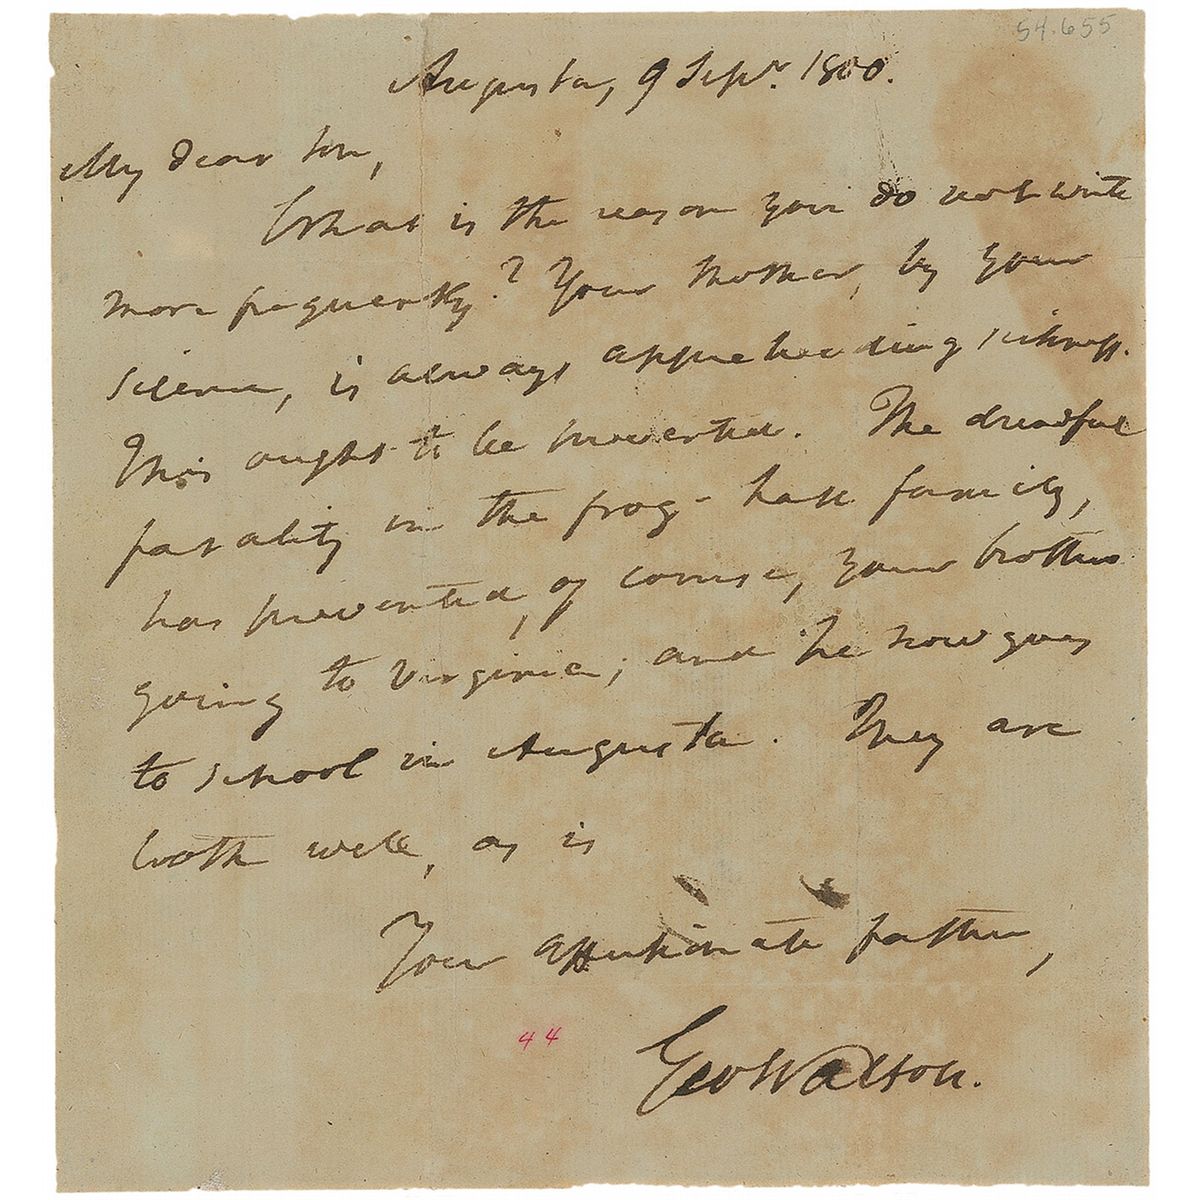 54.655
Augusta, 9 Sepr. 1800.
My dear son,
What is the reason you do not write
more frequently? Your Mother, by your
silence, is always apprehending sickness.
This ought to be prevented. The dreadful
fatality in the frog-hall family,
has prevented, of course, your brothers
going to Virginia; and he now goes
to school in Augusta. They are
both well, as is
Your affectionate father,
44
Geo Walton.